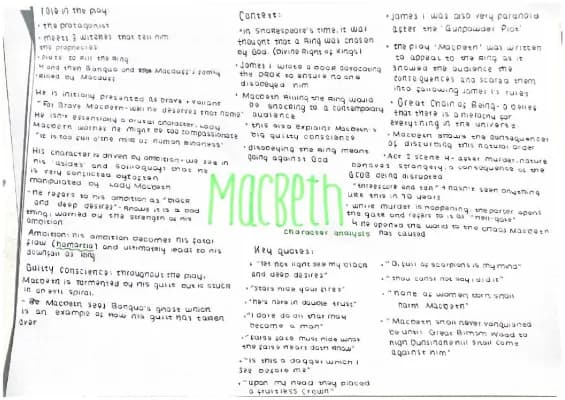 role in the play:
• the protagonist
• meets 3 witches that tell him
the prophecies
• plots to kill the king
and then Banquo and Macduff's family
• killed by Macduff
He is initially presented as brave + valiant
"For brave Macbeth - well he deserves that name"
He isn't essentially a brutal character - Lady
Macbeth worries he might be too compassionate
"it is too full o'the milk of human kindness"
His character is driven by ambition - we see in
his 'asides' and soliloquys that he
is very conflicted
manipulated by Lady Macbeth
• He refers to his ambition as "black
and deep desires" - knows it is a bad
thing, worried by the strength of his
ambition
Ambition: his ambition becomes his fatal
flaw (hamartia) and ultimately leads to his
downfall
Guilty conscience: throughout the play,
Macbeth is tormented by his guilt but is stuck
in an evil spiral.
- Macbeth sees Banquo's ghost which
is an example of how his guilt has taken
over
Context:
• in Shakespeare's time, it was
thought that a king was chosen
by God. (Divine Right of Kings)
• James I wrote a book
the book to ensure no one
disobeyed him
• Macbeth killing the king would
be shocking to a contemporary
audience
• this also explains Macbeth's
big guilty conscience
• disobeying the king means
going against God
MACBETH
character analysis
Key quotes:
• "let not light see my black
and deep desires"
• "stars hide your fires"
• "he's here in double trust"
• "I dare do all that may
become a man"
• "false face must hide what
the false heart doth know"
• "is this a dagger which I
see before me"
• "upon my head they placed
a fruitless crown"
• James I was also very paranoid
after the 'Gunpowder Plot'
• the play 'Macbeth' was written
to appeal to the king as it
showed the audience the
consequences and scared them
into following James I's rules
• Great Chain of Being - a belief
that there is a hierarchy for
everything in the universe
• Macbeth shows the consequences
of disturbing this natural order
• Act 2 Scene 4 - after murder, nature
behaves strangely, a consequence of the
GCOB being disrupted
"threescore and ten" + hasn't seen anything
like this in 70 years
• while murder is happening, the porter opens
the gate and refers to it as "hell-gate"
he opened the world to the chaos Macbeth
has caused
• "O, full of scorpions is my mind"
• "thou canst not say I did it"
• "none of women born shall
harm Macbeth"
• "Macbeth shall never vanquished
be until Great Birnam Wood to
high Dunsinane hill shall come
against him"